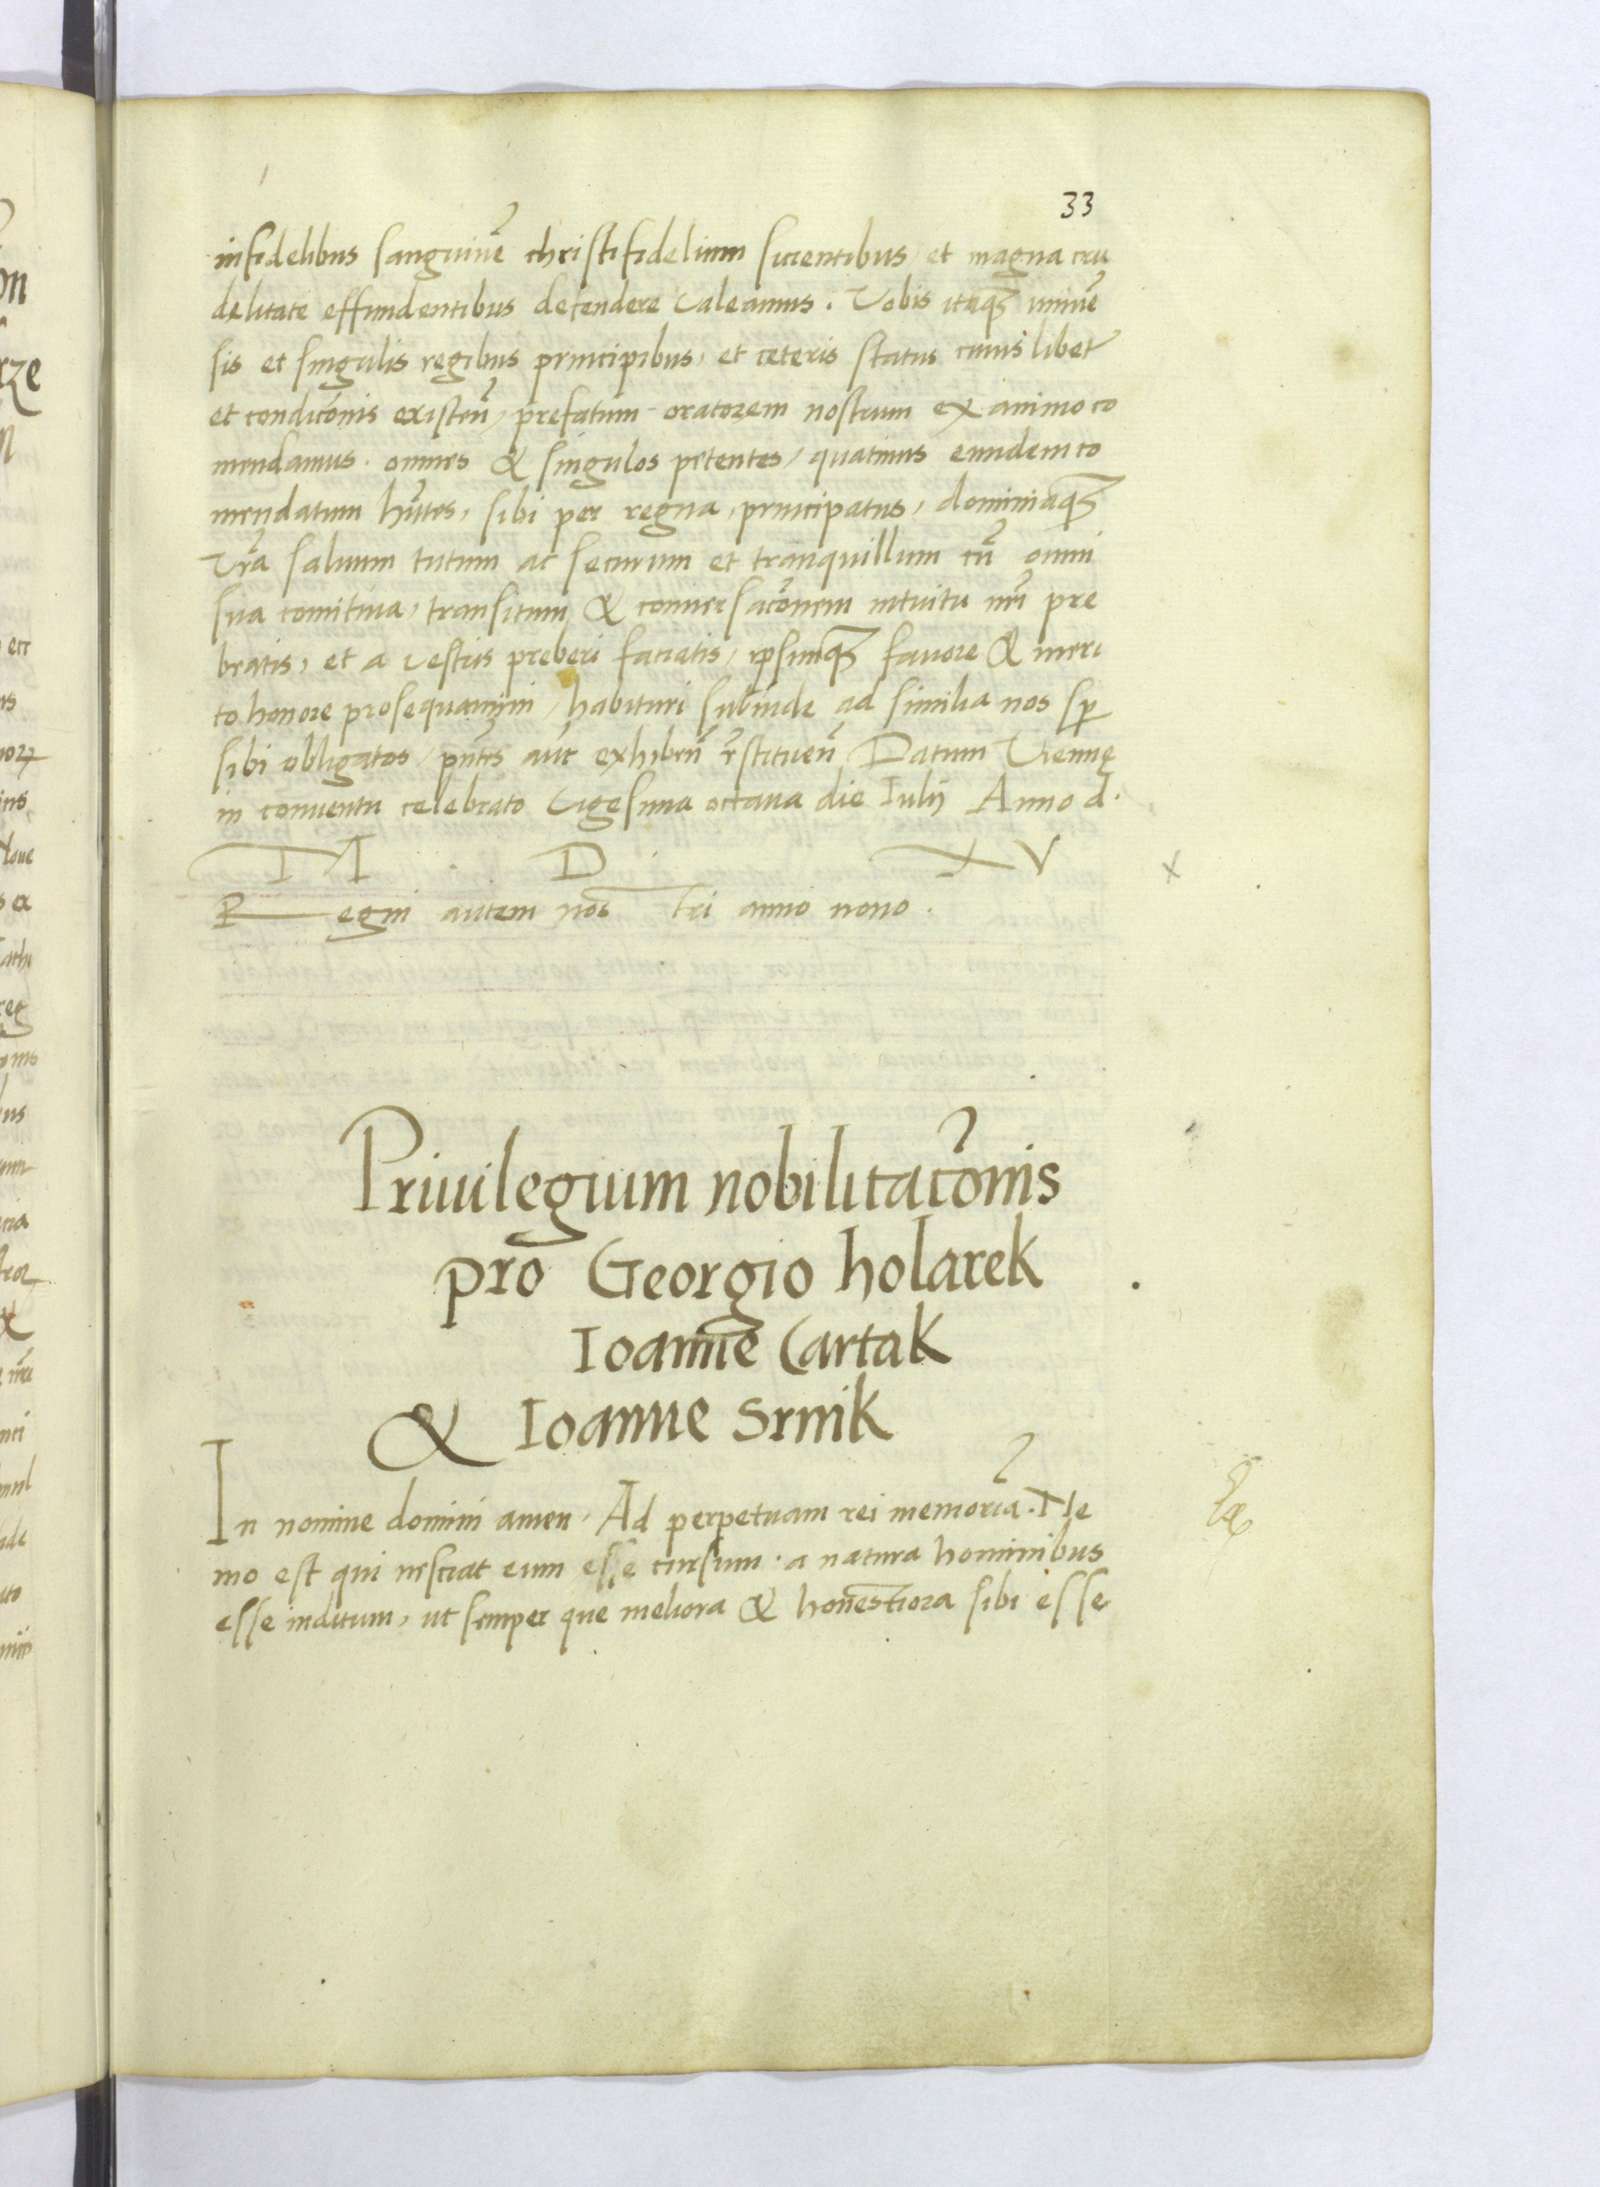 33
infidelibus sanguinē christifidelium sicientibus et magna cru
delitate effundentibus defendere valeamus. Vobis itaq3 uniue
sis et singulis regibus principibus, et ceteris status cuius libet
et condicōnis existen̄, prefatum oratorem nostrum ex animo co
mendamus. omnes & singulos petentes, quatinus eundem co
mendatum hn̄tes, sibi per regna, principatus, dominiaq3
vr̄a saluum tutum ac securum et tranquillum cū omni
sua comitiua, transitum & conuersacōnem intuitu nr̄i pre
beatis, et a vestris preberi faciatis, ipsumq3 fauore & meri
to honore prosequamini, habituri subinde ad similia nos sp̄
sibi obligatos, pn̄tes aūt exhiben̄ restituen̄ Datum Viennę
in conuentu celebrato Vigesima octaua die Iulij Anno d.
M D XV
Regni autem nostri anno nono.
Priuilegium nobilitacōnis
pro Georgio holarek
Ioanne Cartak
& Ioanne Srnik
In nomine domini amen, Ad perpetuam rei memoriā. Ne
mo est qui nesciat eum esse cursum. a natura hominibus
esse inditum, ut semper que meliora & honestiora sibi esse